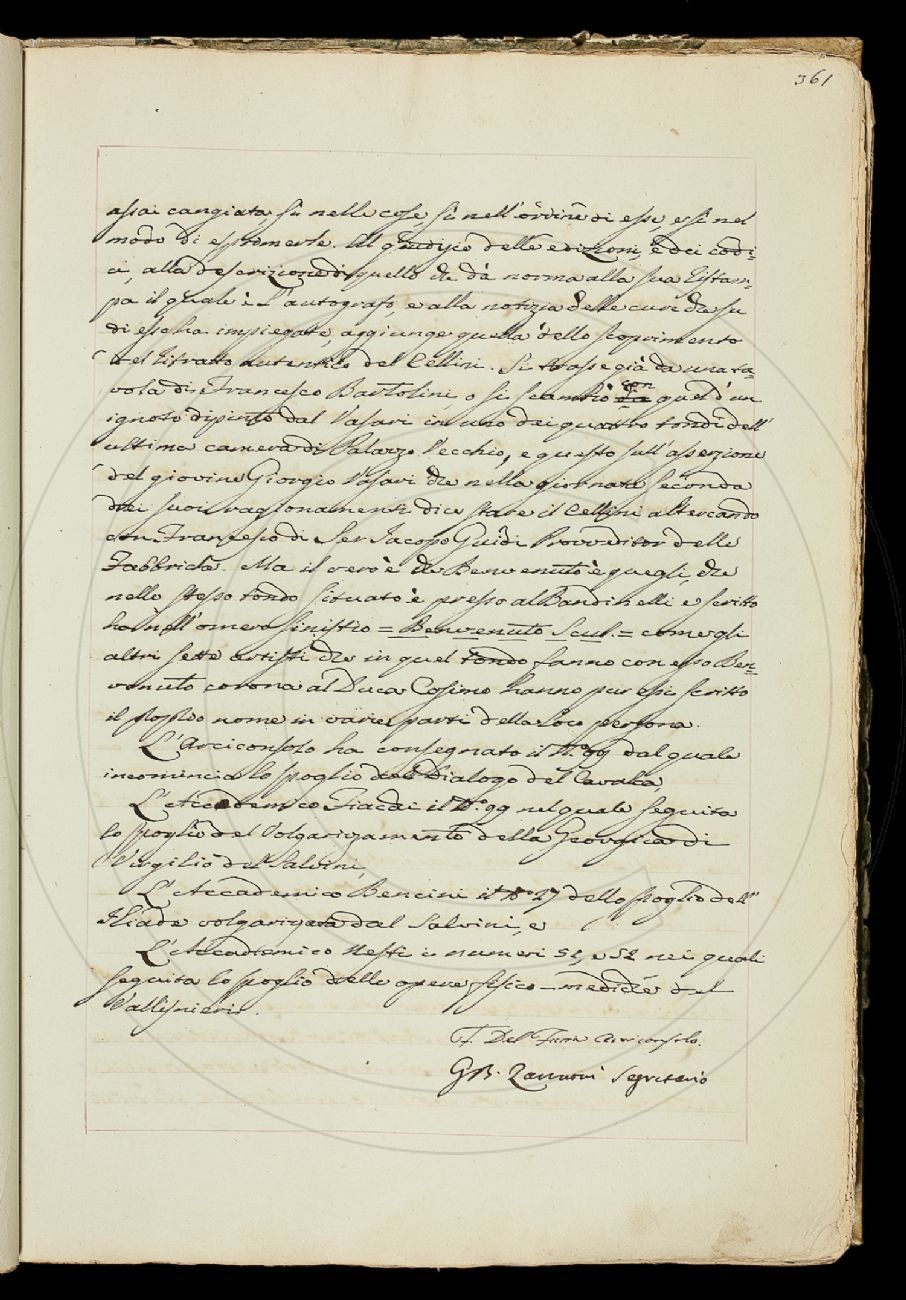 361
assai cangiata, sì nelle cose, sì nell'ordine di esse, e sì nel
modo di esprimerle. Al giudizio delle edizioni, e dei codi=
ci, alla descrizione di quello che dà norma alla sua ristam=
pa il quale è l'autografo, e alla notizia delle cure che su
di esso ha impiegate, aggiunge quella dello scoprimento
del ritratto autentico del Cellini. Si trasse già da una ta=
vola di Francesco Bartolini o si scambiò con quel d'un
ignoto dipinto dal Vasari in uno dei quattro tondi dell'
ultima camera di Palazzo Vecchio, e questo sull'asserzione
del giovine Giorgio Vasari che nella giornata seconda
dei suoi ragionamenti dice stare il Cellini altercando
con Francesco di Ser Jacopo Guidi Provveditor delle
Fabbriche. Ma il vero è che Benvenuto è quegli, che
nello stesso tondo situato è presso al Bandinelli e scritto
ha nell'omero sinistro = Benvenuto Scul. = come gli
altri sette artisti che in quel tondo fanno con esso Ben=
venuto corona al Duca Cosimo hanno pur essi scritto
il proprio nome in varie parti della loro persona.
L'Arciconsolo ha consegnato il N.º 99 dal quale
incomincia lo spoglio del Dialogo del Cavalca,
L'Accademico Fiacchi il N.º 99 nel quale seguita
lo spoglio del Volgarizzamento della Georgica di
Virgilio del Salvini,
L'Accademico Bencini il N.º 27 dello spoglio dell'
Iliade volgarizzata dal Salvini, e
L'Accademico Nesti i numeri 51, e 52 nei quali
seguita lo spoglio delle opere fisico-mediche del
Vallisnieri.
F. Del Furia Arciconsolo.
GB. Zannoni Segretario